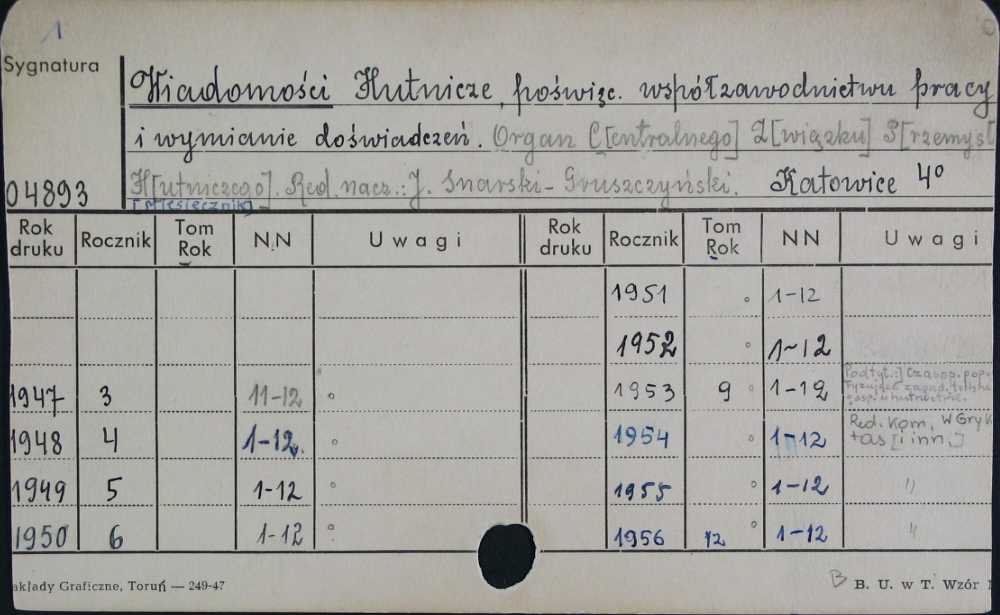 1
Sygnatura
Wiadomości Hutnicze, poświęc. współzawodnictwu pracy
i wymianie doświadczeń. Organ C[entralnego] Z[wiązku] P[rzemysł
04893 H[utniczego]. Red. nacz.: J. Snarski-Gruszczyński. Katowice 4°
[Miesięcznik]
Rok druku Rocznik Tom Rok N.N Uwagi Rok druku Rocznik Tom Rok NN Uwagi
1951 1-12
1952 1-12
1947 3 11-12 1953 9 1-12 Podtyt.:] Czasop. pop.
1948 4 1-12 1954 1-12 Red. Kom. W Gryk
tas [i inn.]
1949 5 1-12 1955 1-12 "
1950 6 1-12 1956 12 1-12 "
akłady Graficzne, Toruń — 249-47 B B. U. w T. Wzór 1